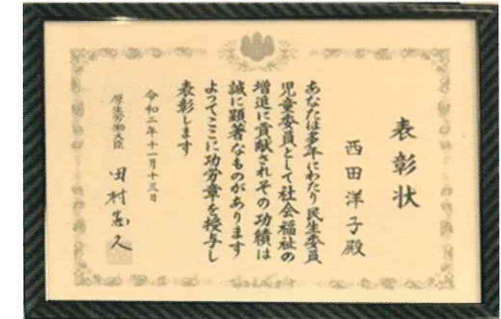 表彰状
西田洋子殿
あなたは多年にわたり民生委員
児童委員として社会福祉の
増進に貢献されその功績は
誠に顕著なものがあります
よってここに功労章を授与し
表彰します
令和二年十一月十三日
厚生労働大臣 田村憲久